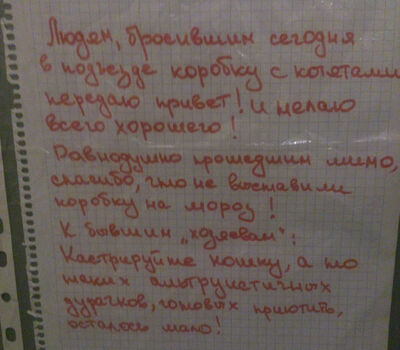 Людям, бросившим сегодня
в подъезде коробку с котятами
передаю привет! и желаю
всего хорошего!
Равнодушно прошедшим мимо,
спасибо, что не выставили
коробку на мороз!
К бывшим „хозяевам":
Кастрируйте кошку, а то
таких альтруистичных
дурачков, готовых приютить,
осталось мало!